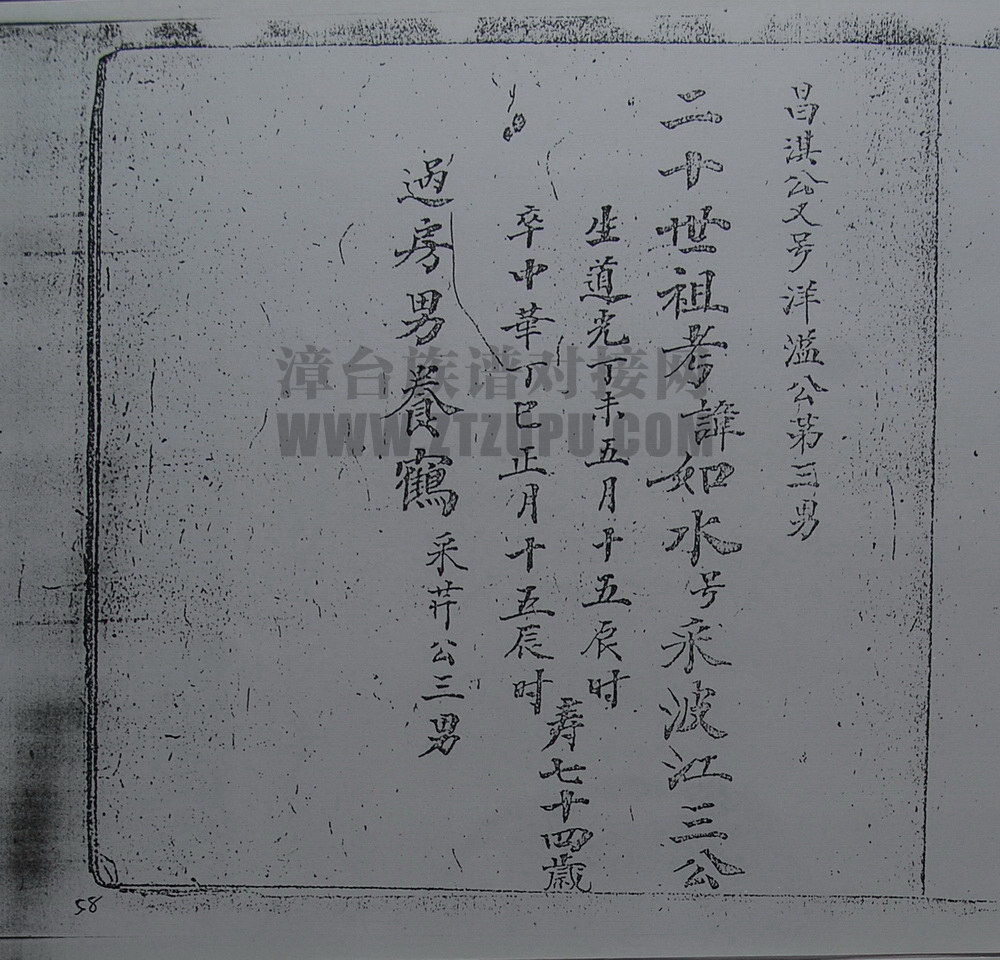 昌淇公又号洋溢公第三男
二十世祖考諱如水号采波江三公
生道光丁未五月十五辰时
卒中華丁巳正月十五辰时
壽七十四歲
過房男養鶴采芹公三男
58
漳台族谱对接网
WWW.ZTZUPU.COM